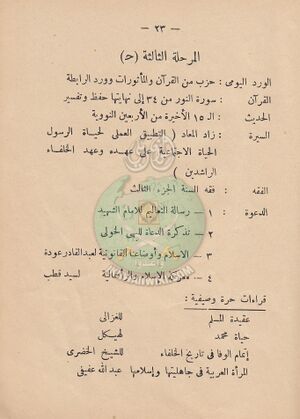 — ٢٣ —
المرحلة الثالثة (ح)
الورد اليومى : حزب من القرآن والمأثورات وورد الرابطة
القرآن : سورة النور من ٣٤ إلى نهايتها حفظ وتفسير
الحديث : الـ ١٥ الأخيرة من الأربعين النووية
السيرة : زاد المعاد ( التطبيق العملى لحياة الرسول
الحياة الاجتماعية على عهده وعهد الخلفاء
الراشدين )
الفقه : فقه السنة الجزء الثالث
الدعوة : ١ — رسالة التعاليم للامام الشهيد
٢ — تذكرة الدعاة للبهى الخولى
٣ — الاسلام وأوضاعنا القانونية لعبد القادر عودة
٤ — معركة الاسلام والرأسمالية لسيد قطب
قراءات حرة وصيفية :
عقيدة المسلم للغزالى
حياة محمد لهيكل
إتمام الوفا فى تاريخ الخلفاء للشيخ الخضرى
المرأة العربية فى جاهليتها وإسلامها عبد الله عفيفى